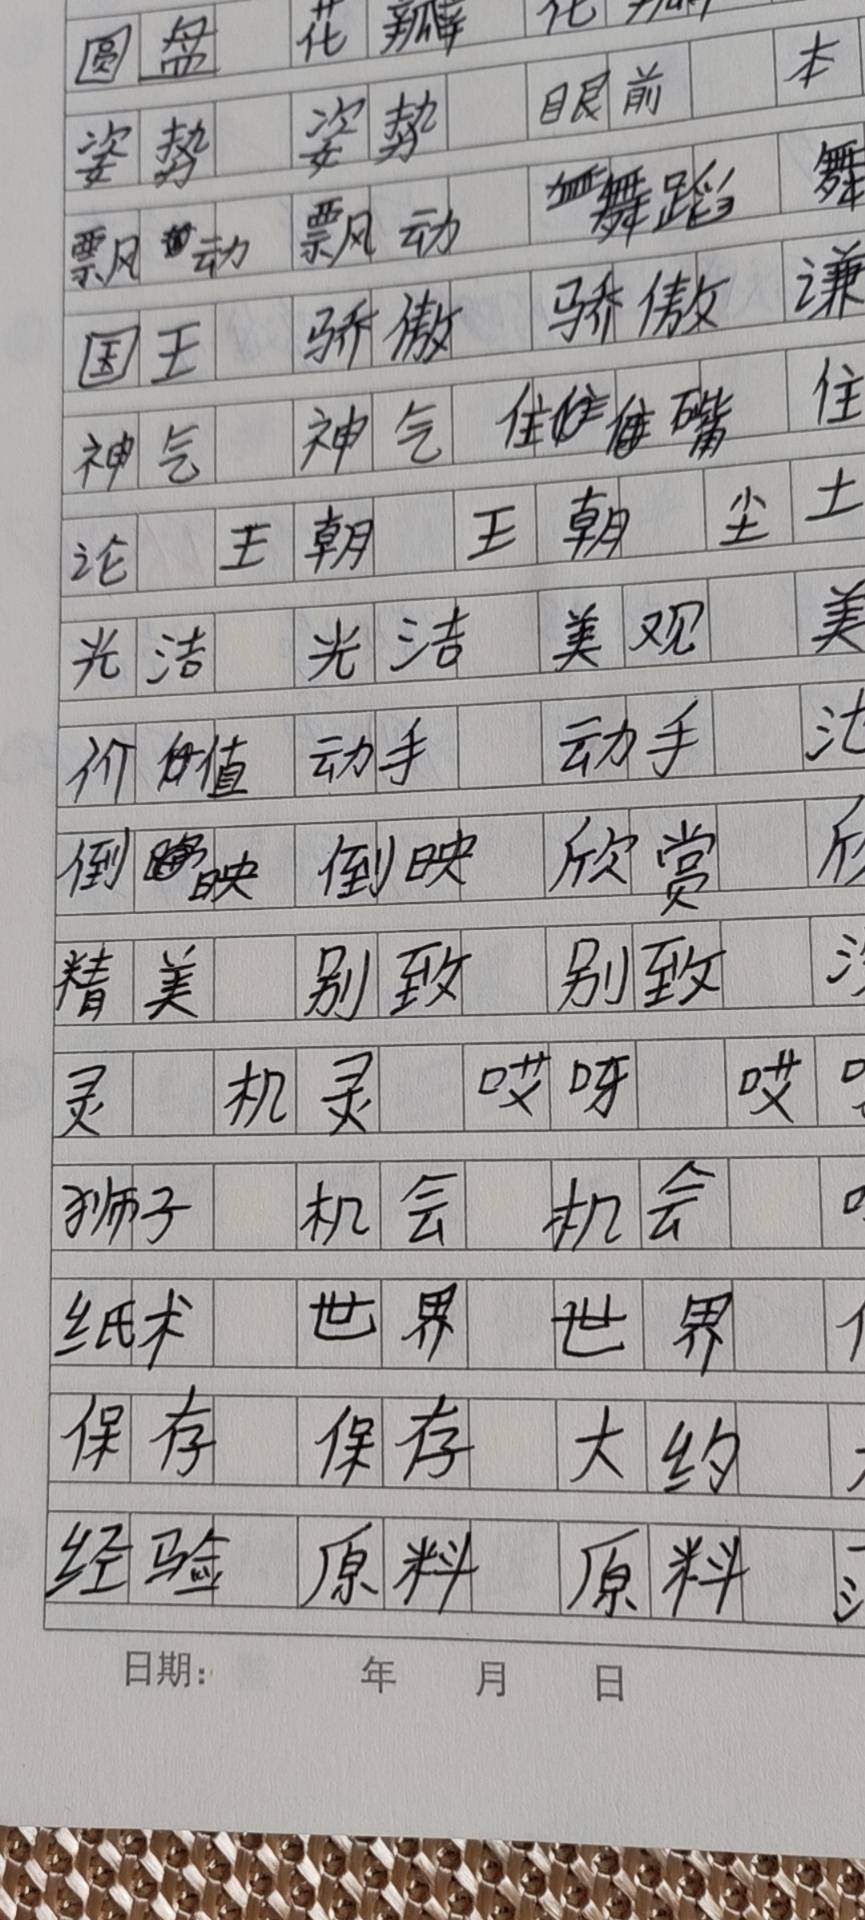 圆盘 花瓣 花瓣
姿势 姿势 眼前 本
飘动 飘动 舞蹈 舞
国王 骄傲 骄傲 谦
神气 神气 住嘴 住
论 王朝 王朝 尘土
光洁 光洁 美观 美
价值 动手 动手
倒映 倒映 欣赏 欣
精美 别致 别致
灵 机灵 哎呀 哎
狮子 机会 机会
纸术 世界 世界
保存 保存 大约
经验 原料 原料
日期: 年 月 日